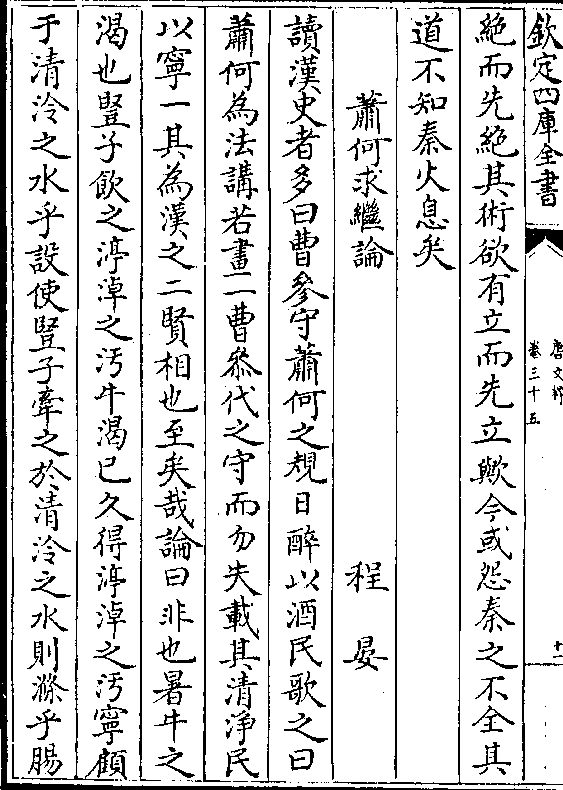 欽定四庫全書
唐文粹
卷三十五
十一
絶而先絶其術欲有立而先立歟今或怨秦之不全其
道不知秦火息矣
蕭何求繼論 程晏
讀漢史者多曰曹參守蕭何之規日醉以酒民歌之曰
蕭何為法講若畫一曹參代之守而勿失載其清淨民
以寧一其為漢之二賢相也至矣哉論曰非也暑牛之
渴也豎子飲之渟淖之汚牛渴已久得渟淖之汚寧顧
于清泠之水乎設使豎子牽之於清泠之水則滌乎腸